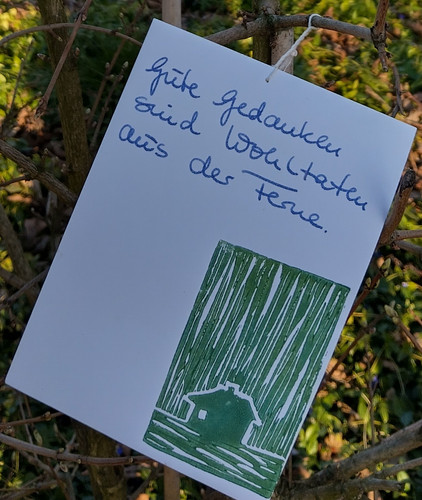 Gute Gedanken
sind Wohltaten
aus der Ferne.